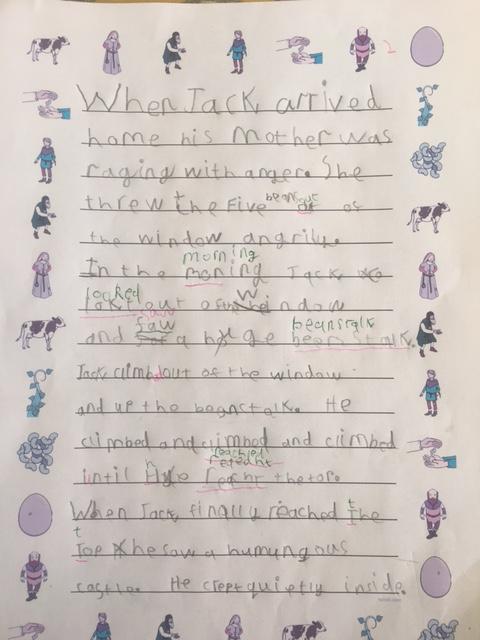 When Jack arrived
home his Mother was
raging with anger. She
threw the Five beans out of
the window angrily.
morning
In the moning Jack
looked
out of window
saw beanstalk
and a huge bean stalk.
Jack climbd out of the window
and up the beanstalk. He
climbed and climbed and climbed
reached
until he the top.
When Jack finally reached the
Top he saw a humungous
castle. He crept quietly inside.